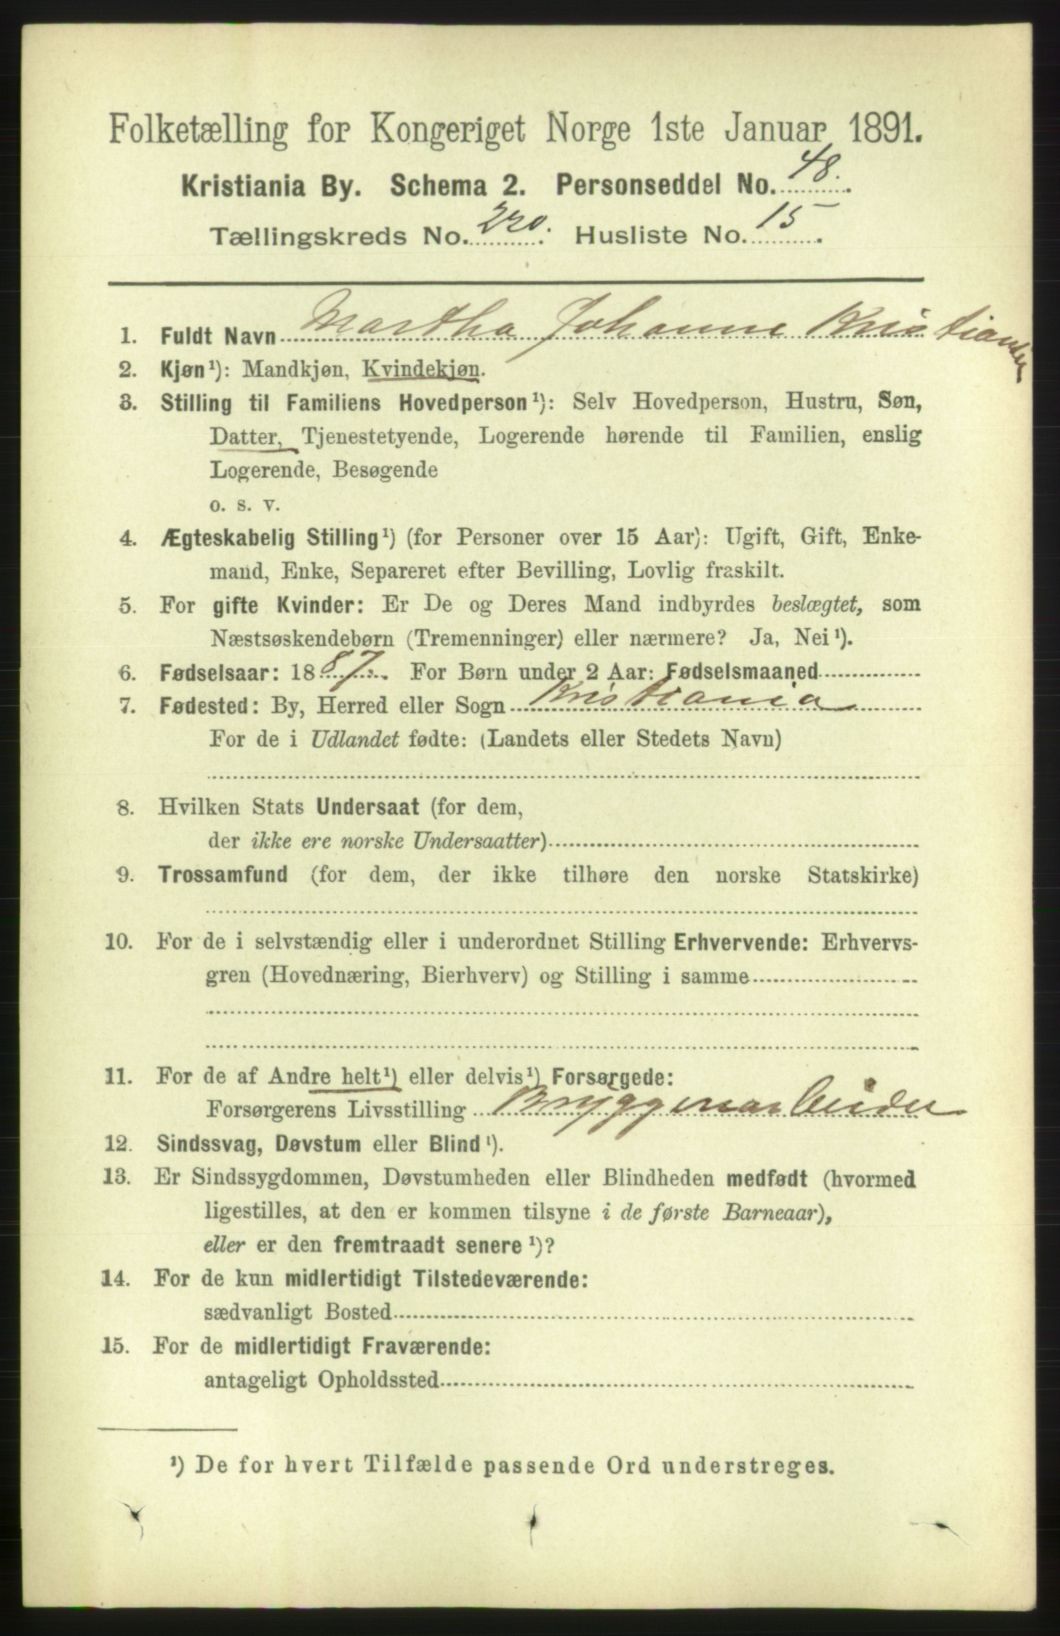 Folketælling for Kongeriget Norge 1ste Januar 1891.
Kristiania By. Schema 2. Personseddel No. 48.
Tællingskreds No. 220. Husliste No. 15.
1. Fuldt Navn Martha Johanne Kristiansen
2. Kjøn¹): Mandkjøn, Kvindekjøn.
3. Stilling til Familiens Hovedperson¹): Selv Hovedperson, Hustru, Søn,
Datter, Tjenestetyende, Logerende hørende til Familien, enslig
Logerende, Besøgende
o. s. v.
4. Ægteskabelig Stilling¹) (for Personer over 15 Aar): Ugift, Gift, Enke-
mand, Enke, Separeret efter Bevilling, Lovlig fraskilt.
5. For gifte Kvinder: Er De og Deres Mand indbyrdes beslægtet, som
Næstsøskendebørn (Tremenninger) eller nærmere? Ja, Nei¹).
6. Fødselsaar: 1887. For Børn under 2 Aar: Fødselsmaaned
7. Fødested: By, Herred eller Sogn Kristiania
For de i Udlandet fødte: (Landets eller Stedets Navn)
8. Hvilken Stats Undersaat (for dem,
der ikke ere norske Undersaatter)
9. Trossamfund (for dem, der ikke tilhøre den norske Statskirke)
10. For de i selvstændig eller i underordnet Stilling Erhvervende: Erhvervs-
gren (Hovednæring, Bierhverv) og Stilling i samme
11. For de af Andre helt¹) eller delvis¹) Forsørgede:
Forsørgerens Livsstilling Bryggeriarbeider
12. Sindssvag, Døvstum eller Blind¹).
13. Er Sindssygdommen, Døvstumheden eller Blindheden medfødt (hvormed
ligestilles, at den er kommen tilsyne i de første Barneaar),
eller er den fremtraadt senere¹)?
14. For de kun midlertidigt Tilstedeværende:
sædvanligt Bosted
15. For de midlertidigt Fraværende:
antageligt Opholdssted
¹) De for hvert Tilfælde passende Ord understreges.